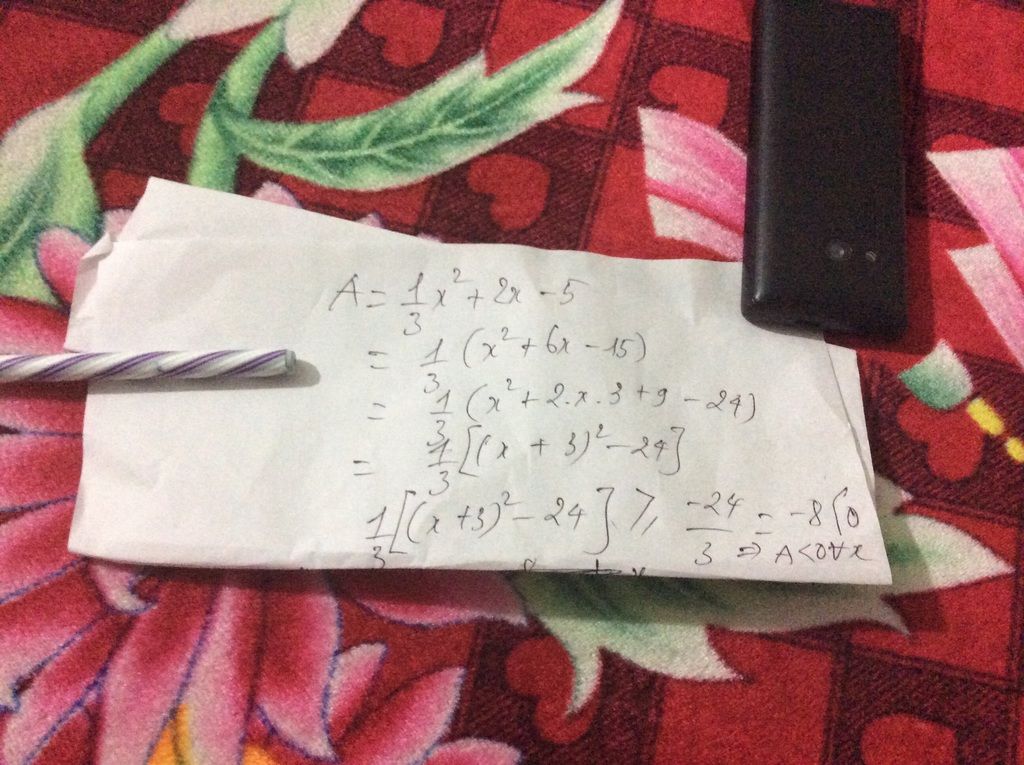 A = 1/3 x² + 2x - 5
= 1/3 (x² + 6x - 15)
= 1/3 (x² + 2.x.3 + 9 - 24)
= 1/3 [(x + 3)² - 24]
1/3 [(x + 3)² - 24] ≥ -24/3 = -8 < 0
⇒ A < 0 ∀ x